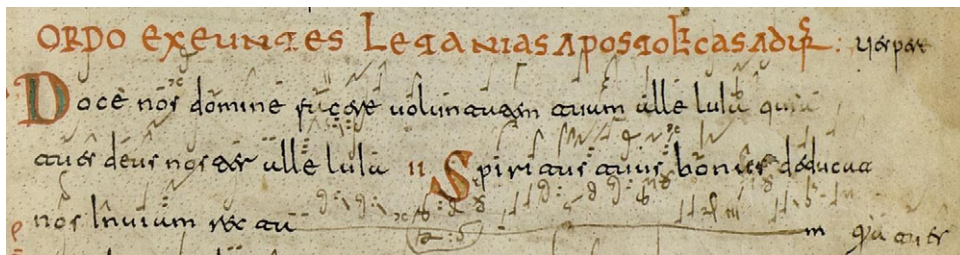 ORDO EXEUNTES LETANIAS APOSTOLICAS
Doce nos domine facere uoluntatem tuam alle luia quia
tu es deus noster alle luia II Spiritus tuus bonus deducat
nos in uiam rec ta m Quia tu es